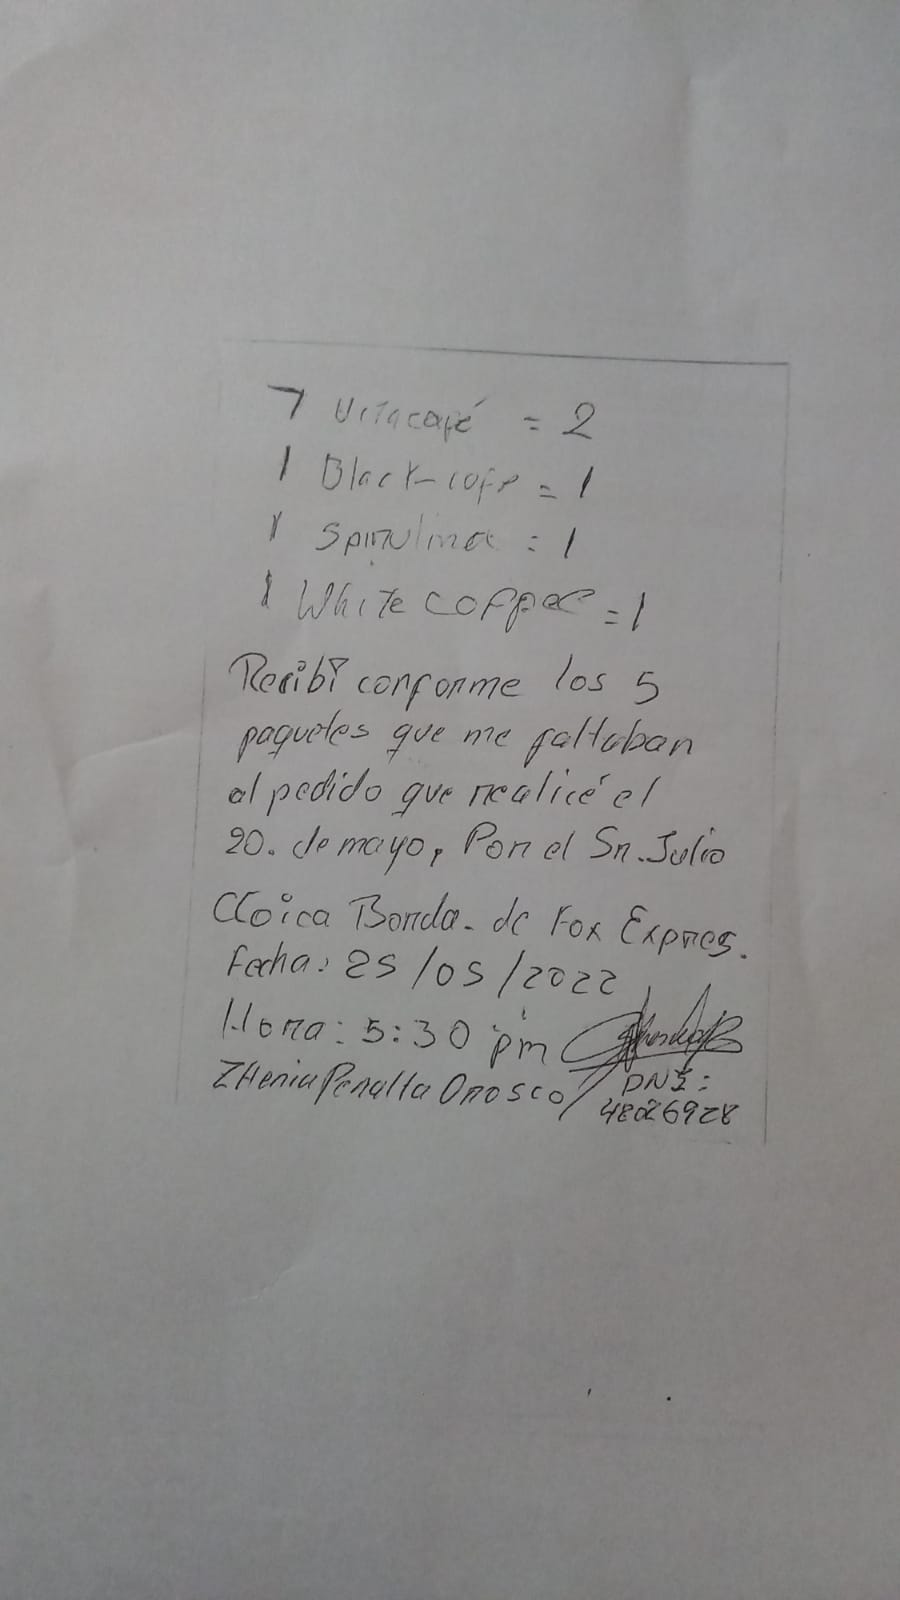 7 Vitacafé = 2
1 Black-cofe = 1
1 Spirulina = 1
1 White coffee = 1
Recibí conforme los 5
paquetes que me faltaban
al pedido que realicé el
20. de mayo, Por el Sr. Julio
Ccoica Banda. de Fox Expres.
Fecha: 25/05/2022
Hora: 5:30 pm
Zhenia Peralta Orosco
DNI: